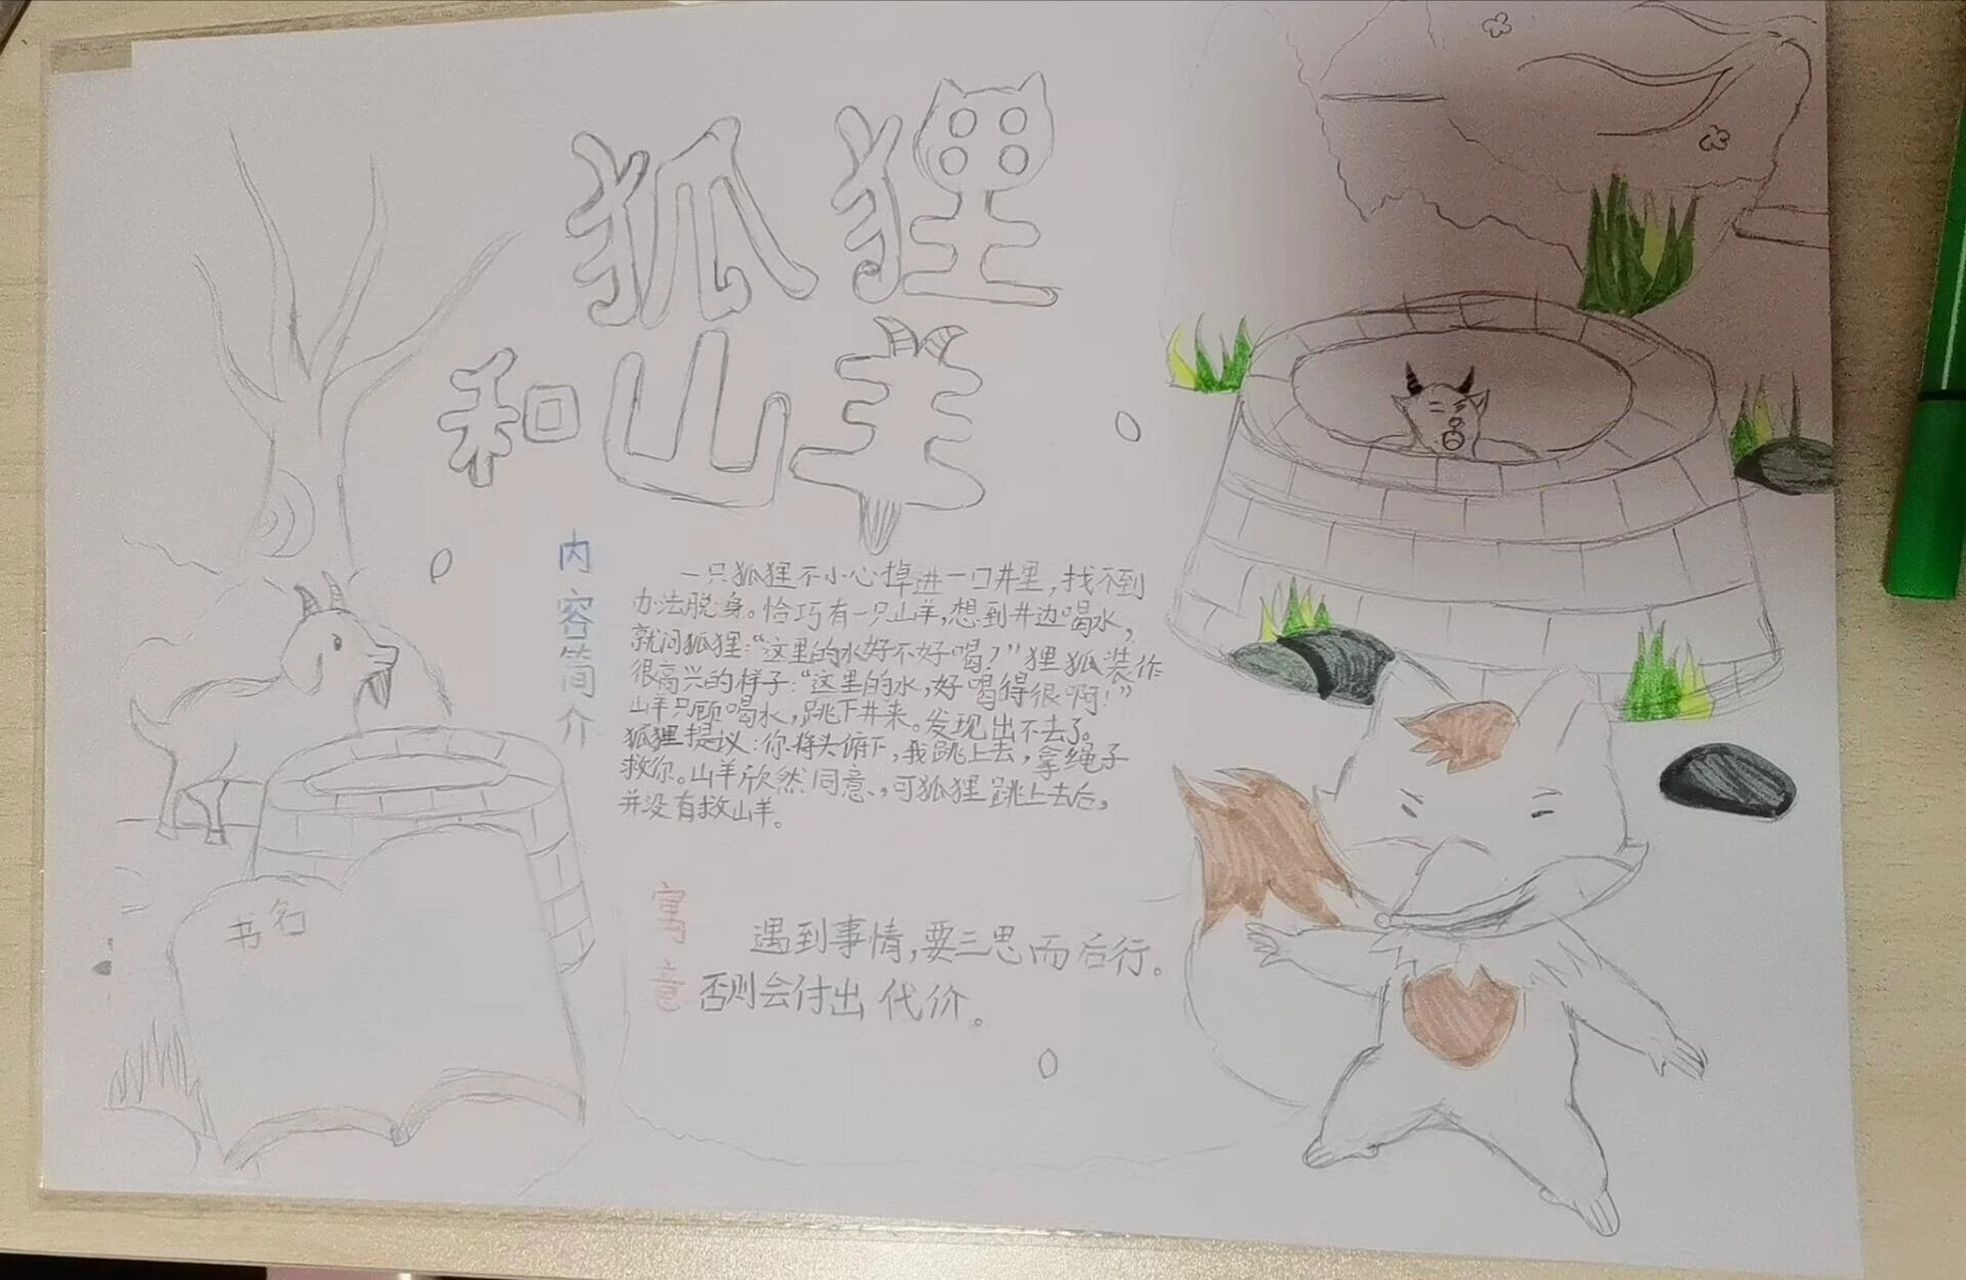 狐狸
和山羊
内容简介
一只狐狸不小心掉进一口井里，找不到
办法脱身。恰巧有一只山羊，想到井边喝水，
就问狐狸：“这里的水好不好喝？”狸狐装作
很高兴的样子：“这里的水，好喝得很啊！”
山羊只顾喝水，跳下井来。发现出不去了。
狐狸提议：你将头俯下，我跳上去，拿绳子
救你。山羊欣然同意，可狐狸跳上去后，
并没有救山羊。
寓意
遇到事情，要三思而后行。
否则会付出代价。
书名